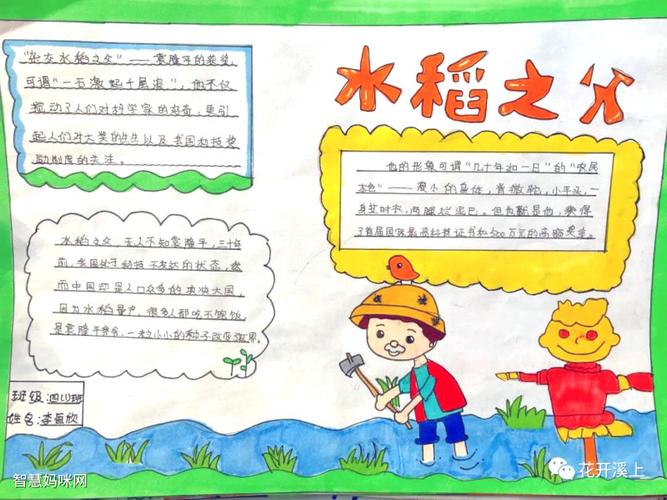 水稻之父
"杂交水稻之父"——袁隆平的获奖,
可谓"一石激起千层浪",他不仅
搅动了人们对科学家的好奇,更引
起人们对大奖的生以及我国科技奖
励制度的关注。
他的形象可谓"几十年如一日"的"农民
本色"——瘦小的身体,背微驼,小平头,一
身出时衣,两腿松泥巴。但也就是他,获得
了首届国家最高科技证书和500万元的高额奖金。
水稻之父,无人不知袁隆平,三十年
前,我国处于科技不发达的状态,然
而中国却是人口众多的泱泱大国,
因为水稻量产,很多人都吃不饱饭,
是袁隆平爷爷,一粒小小的种子改变世界。
班级:四(1)班
姓名:李
欣
智慧妈咪网
花开溪上